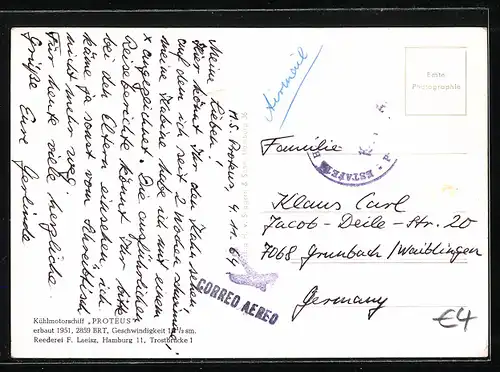 M.S. Proteus, 4.11.64
Meine Lieben!
Hier könnt Ihr den Kahn sehen,
auf dem ich seit 2 Wochen schwimme,
meine Kabine habe ich mit einem
x angezeichnet. Die ausführlichen
Reiseberichte könnt Ihr bitte
bei den Eltern einsehen, ich
käme ja sonst vom Schreibtisch
nicht mehr weg.
Für heute viele herzliche
Grüße Eure Gerlinde
Kühlmotorschiff „PROTEUS"
erbaut 1951, 2859 BRT, Geschwindigkeit sm.
Reederei F. Laeisz, Hamburg 11, Trostbrücke 1
Echte
Photographie
ESTAFETA
CORREO AEREO
Familie
Klaus Carl
Jacob-Deile-Str. 20
7068 Grunbach/Waiblingen
Germany
€4